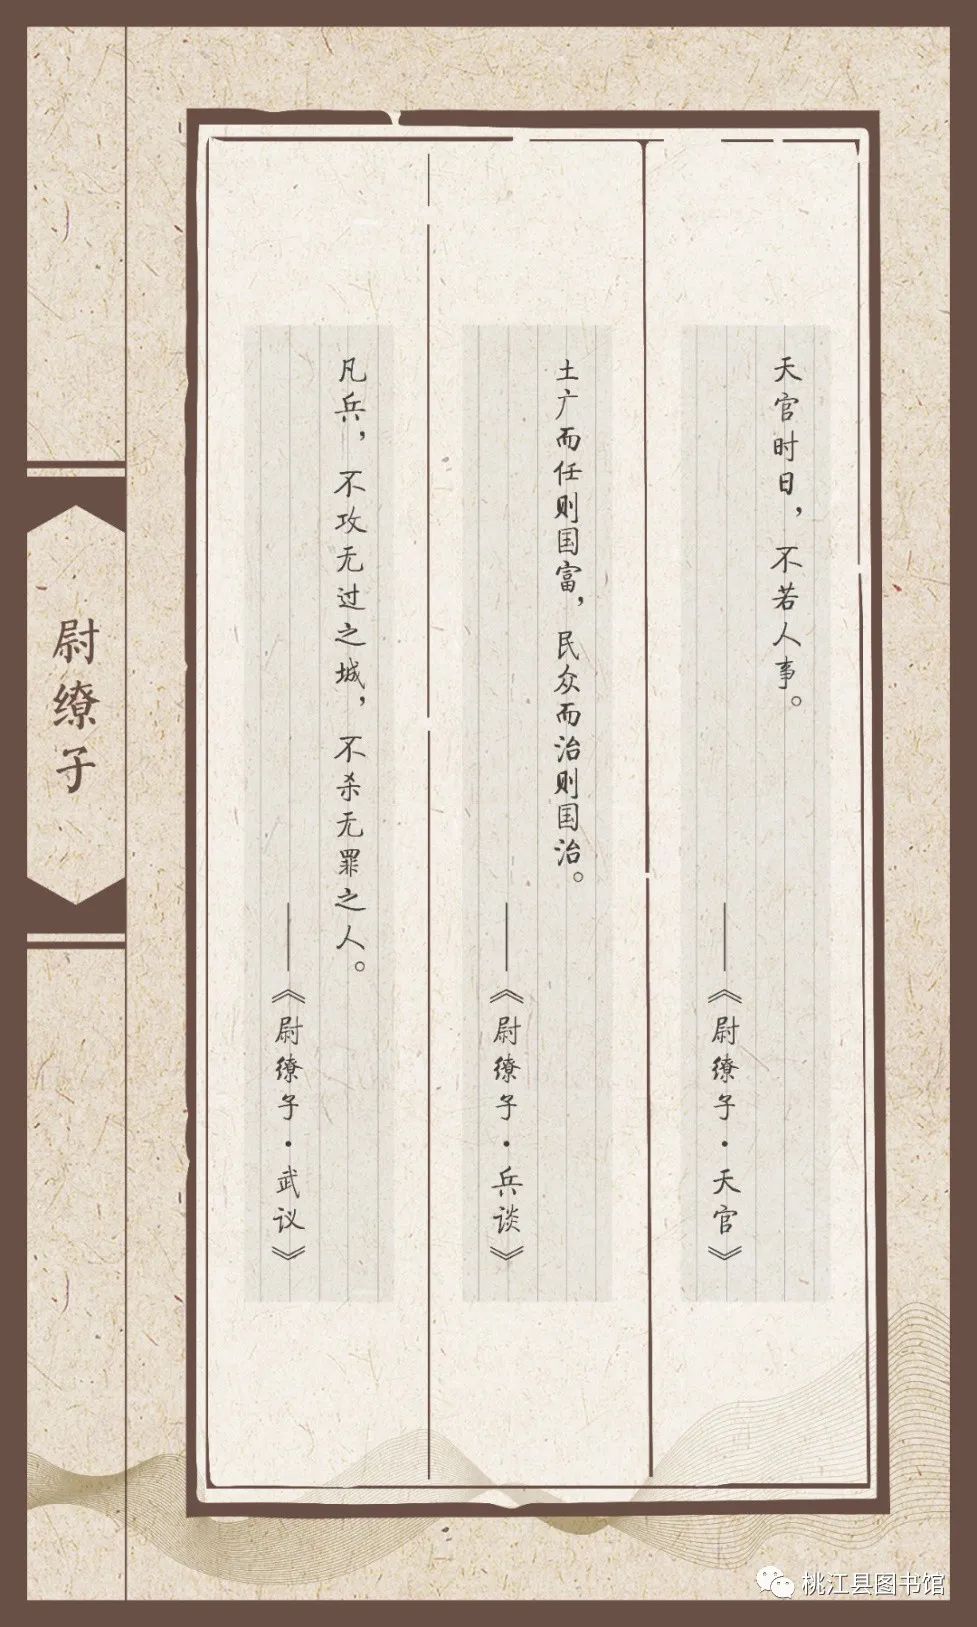 天官时日，不若人事。
——《尉缭子·天官》
土广而任则国富，民众而治则国治。
——《尉缭子·兵谈》
凡兵，不攻无过之城，不杀无罪之人。
——《尉缭子·武议》
尉缭子
桃江县图书馆